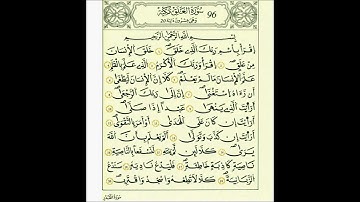 سُورَةُ الْعَلَقِ مَكِّيَّة 96
بِسْمِ اللَّهِ الرَّحْمَٰنِ الرَّحِيمِ
اقْرَأْ بِاسْمِ رَبِّكَ الَّذِي خَلَقَ خَلَقَ الْإِنسَانَ
مِنْ عَلَقٍ اقْرَأْ وَرَبُّكَ الْأَكْرَمُ الَّذِي عَلَّمَ بِالْقَلَمِ
عَلَّمَ الْإِنسَانَ مَا لَمْ يَعْلَمْ كَلَّا إِنَّ الْإِنسَانَ لَيَطْغَىٰ
أَن رَّءَاهُ اسْتَغْنَىٰ إِنَّ إِلَىٰ رَبِّكَ الرُّجْعَىٰ
أَرَأَيْتَ الَّذِي يَنْهَىٰ عَبْدًا إِذَا صَلَّىٰ
أَرَأَيْتَ إِن كَانَ عَلَى الْهُدَىٰ أَوْ أَمَرَ بِالتَّقْوَىٰ
أَرَأَيْتَ إِن كَذَّبَ وَتَوَلَّىٰ أَلَمْ يَعْلَم بِأَنَّ اللَّهَ
يَرَىٰ كَلَّا لَئِن لَّمْ يَنتَهِ لَنَسْفَعًا بِالنَّاصِيَةِ
نَاصِيَةٍ كَاذِبَةٍ خَاطِئَةٍ فَلْيَدْعُ نَادِيَهُ سَنَدْعُ
الزَّبَانِيَةَ كَلَّا لَا تُطِعْهُ وَاسْجُدْ وَاقْتَرِب